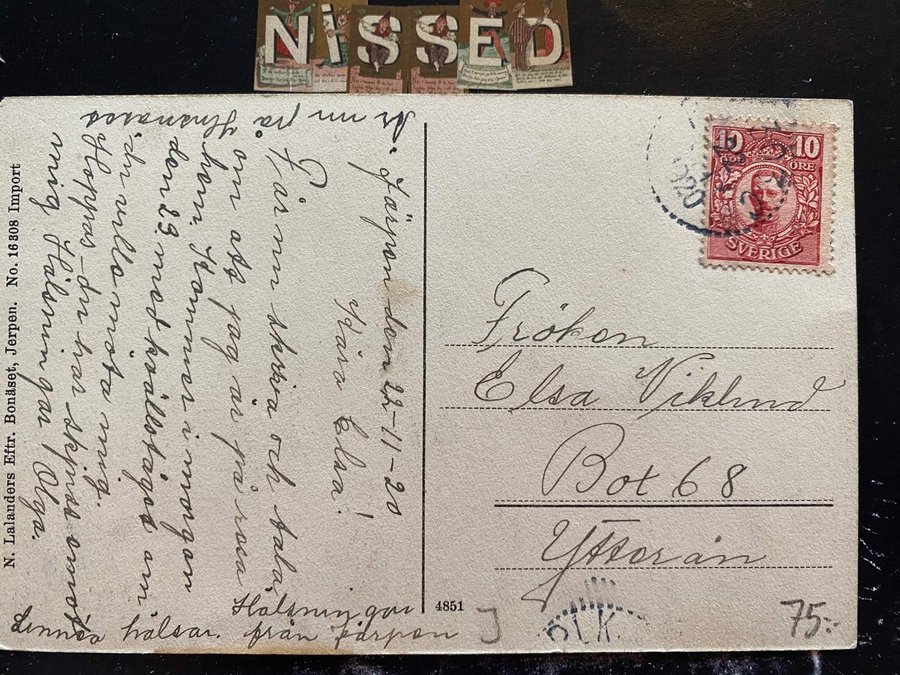 NISSED
Är nu på
Husnäset
Järpen den 22-11-20
Kära Elsa!
Får nu skriva och tala
om att jag är på resa
hem. Kommer i morgon
den 23 med kvälståget om
du ville möta mig.
Hoppas du har skjuss emot
mig Hälsningar Olga.
Hälsningar
från Järpen
Linnéa hälsar.
N. Lalanders Eftr. Bonäset, Jerpen. No. 16308 Import
4851
10 10
ÖRE ÖRE
SVERIGE
1920
Fröken
Elsa Viklund
Box 68
Ytterån
PLK.
J
75:-